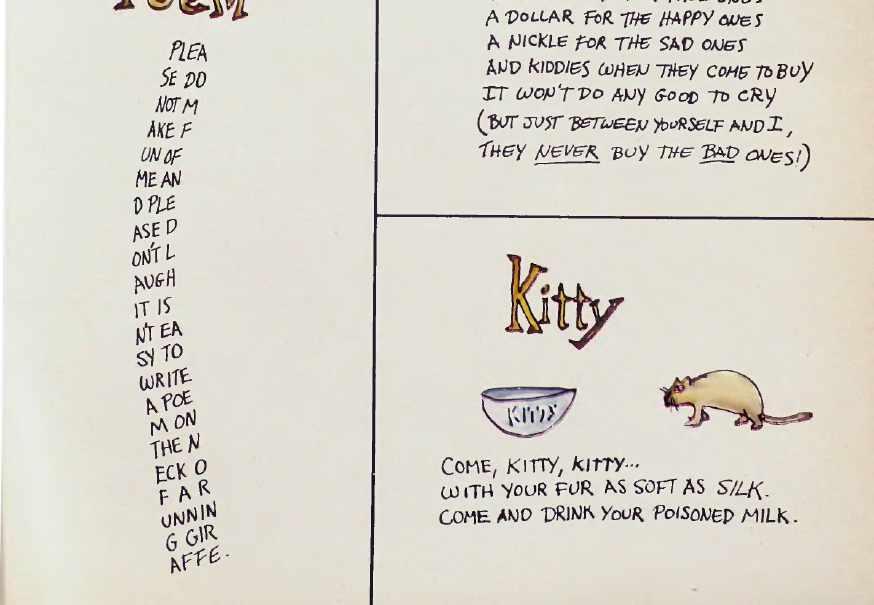 POEM
PLEA
SE DO
NOT M
AKE F
UN OF
ME AN
D PLE
ASE D
ON'T L
AUGH
IT IS
N'T EA
SY TO
WRITE
A POE
M ON
THE N
ECK O
F A R
UNNIN
G GIR
AFFE.
A DOLLAR FOR THE HAPPY ONES
A NICKLE FOR THE SAD ONES
AND KIDDIES WHEN THEY COME TO BUY
IT WON'T DO ANY GOOD TO CRY
(BUT JUST BETWEEN YOURSELF AND I,
THEY NEVER BUY THE BAD ONES!)
Kitty
KITTY
COME, KITTY, KITTY...
WITH YOUR FUR AS SOFT AS SILK.
COME AND DRINK YOUR POISONED MILK.